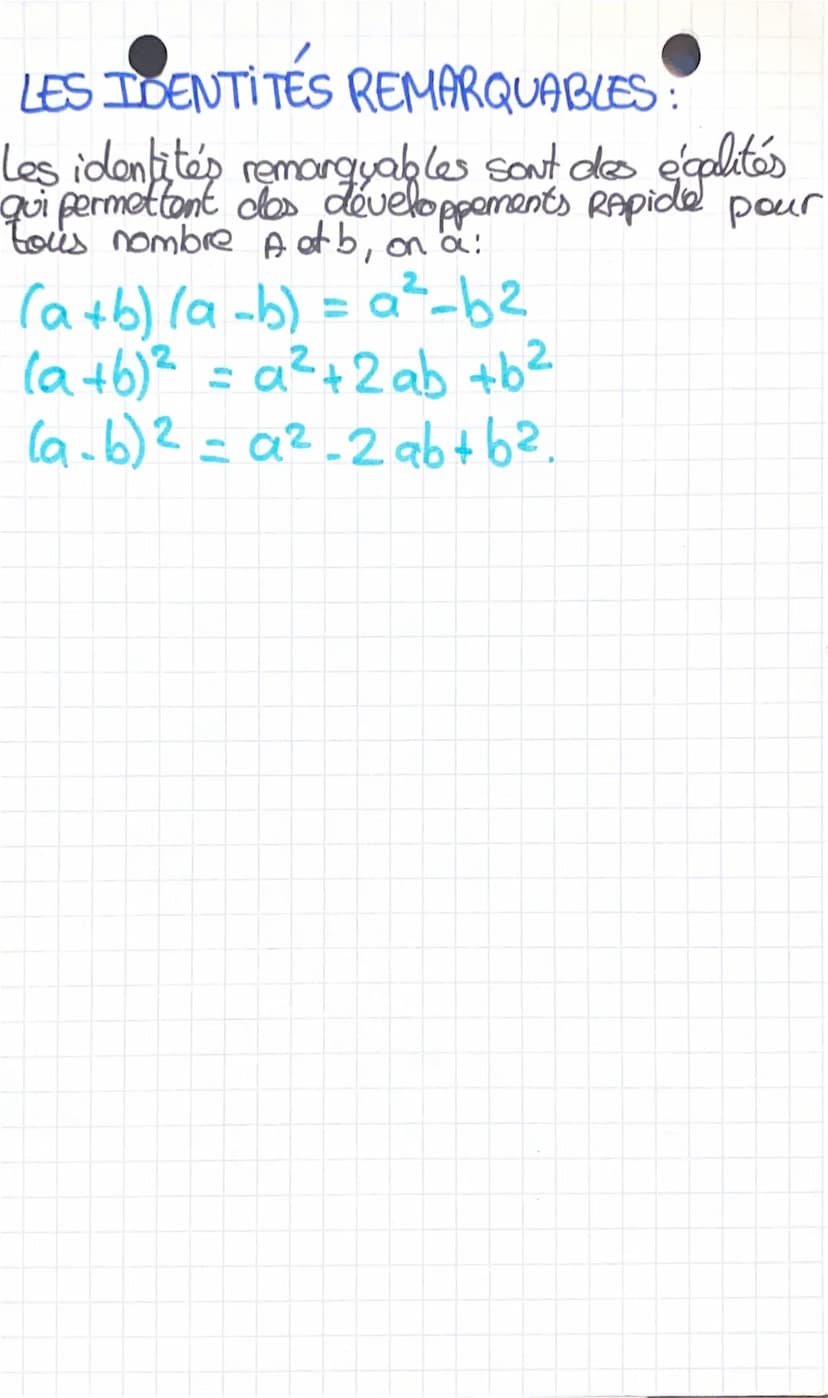 LES IDENTITÉS REMARQUABLES :
Les identités remarquables sont des égalités
qui permettent des développements RApide pour
tous nombre A et b, on a :
(a+b) (a-b) = a²-b2
(a+b)² = a²+2ab +b²
(a-b)² = a²-2ab+b².